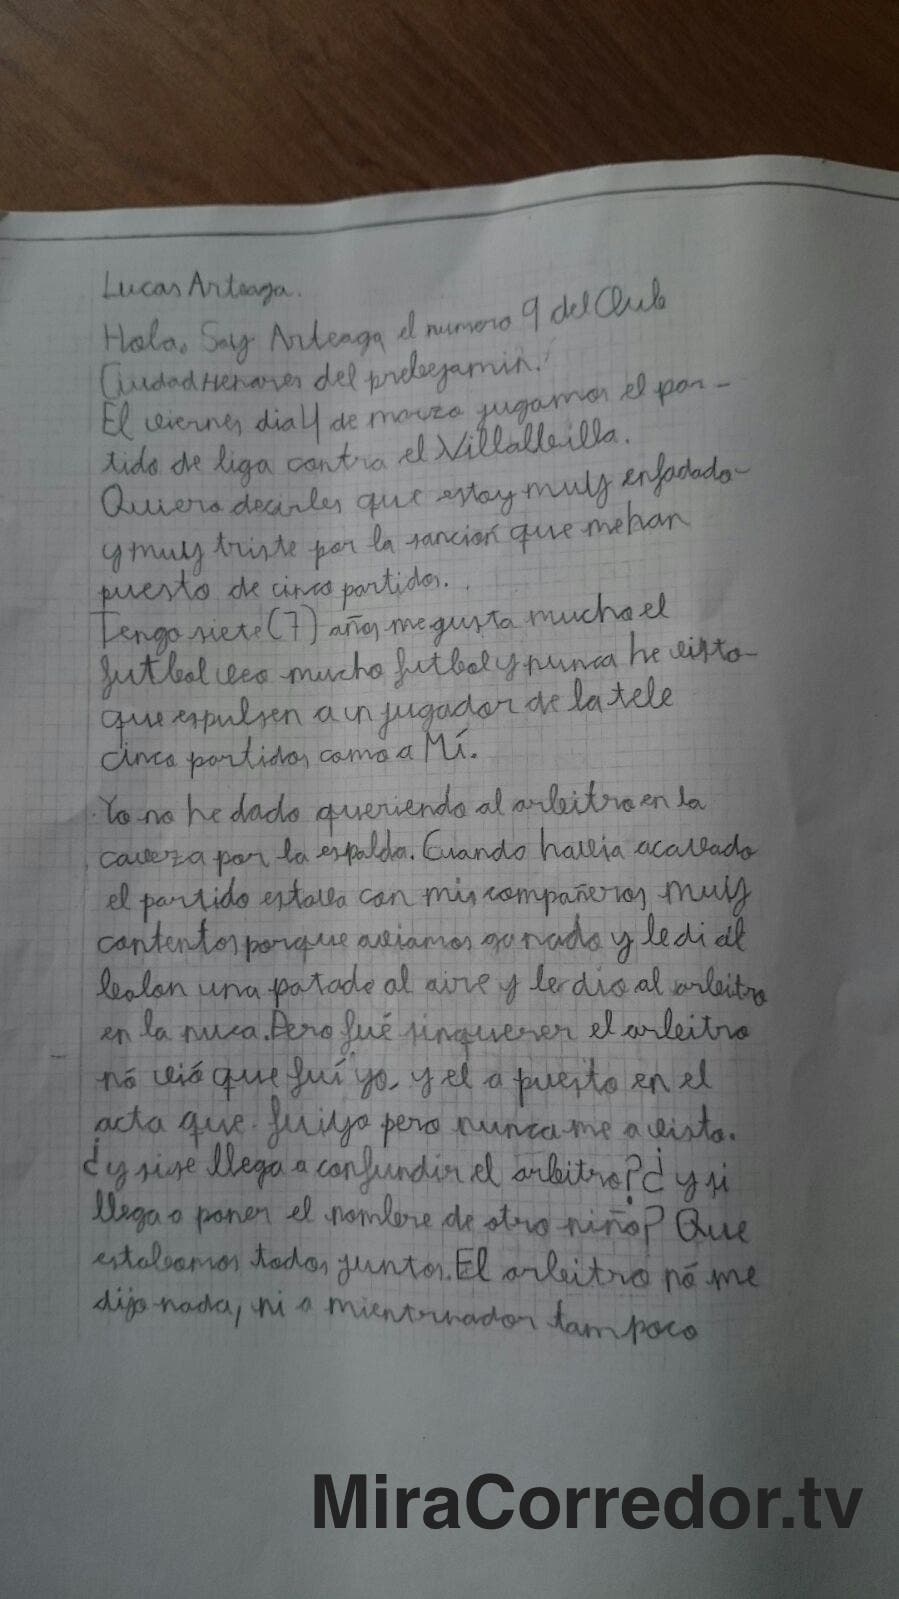 Lucas Arteaga.
Hola. Soy Arteaga, el numero 9 del Club
Ciudad Henares del prebejamin.
El viernes dia 4 de marzo jugamos el par-
tido de liga contra el Villalbilla.
Quiero decirles que estoy muy enfadado-
y muy triste por la sanción que me han
puesto de cinco partidos.
Tengo siete (7) años me gusta mucho el
futbol veo mucho futbol y nunca he visto-
que espulsen a un jugador de la tele
cinco partidos como a Mí.
Yo no he dado queriendo al arbitro en la
caveza por la espalda. Cuando havia acavado
el partido estava con mis compañeros muy
contentos porque aviamos ganado y le di al
balon una patada al aire y le dio al arbitro
en la nuca. Pero fué sinquerer el arbitro
nó vió que fuí yo, y el a puesto en el
acta que fui yo pero nunca me a visto.
¿y si se llega a confundir el arbitro? ¿y si
llega a poner el nombre de otro niño? Que
estabamos todos juntos. El arbitro nó me
dijo nada, ni a mi entrnador tampoco
MiraCorredor.tv